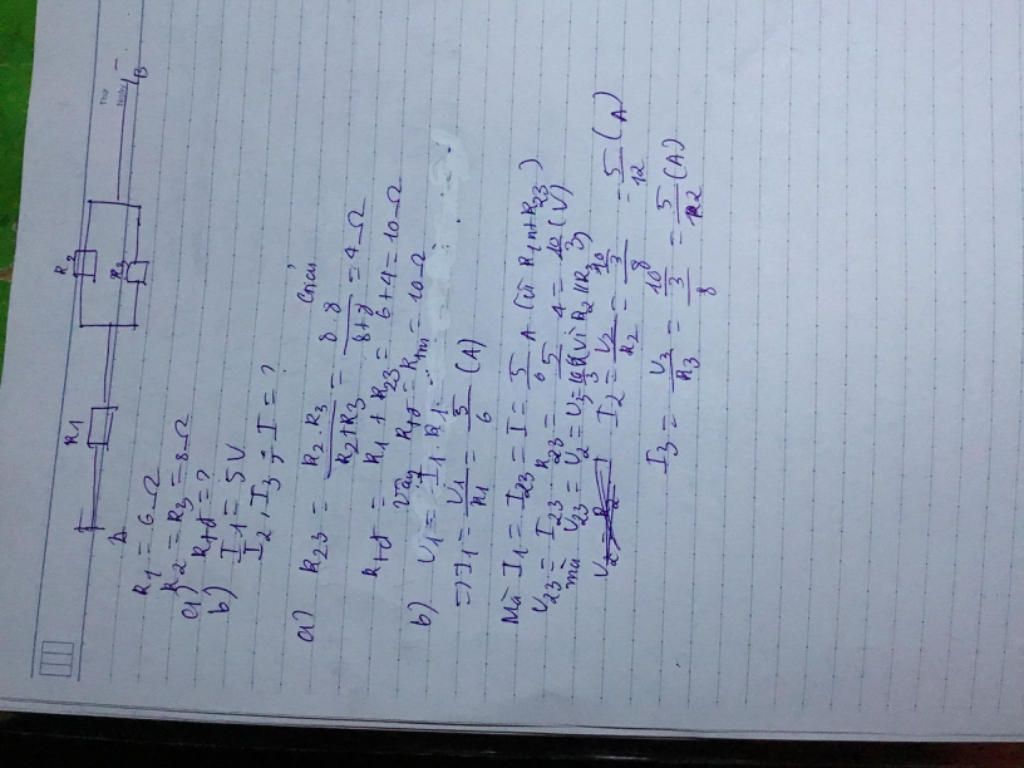 Thứ
Ngày
R1
R2
R3
A
B
R1 = 6Ω
R2 = R3 = 8Ω
a) Rtđ = ?
b) I1 = 5V
I2, I3, I = ?
Giải
a) R23 = R2.R3 / R2+R3 = 8.8 / 8+8 = 4Ω
Rtđ = R1 + R23 = 6+4 = 10Ω
Vậy Rtđ = Rtm = 10Ω
b) U1 = I1.R1
=> I1 = U1 / R1 = 5 / 6 (A)
Mà I1 = I23 = I = 5 / 6 A (vì R1 nt R23)
U23 = I23 . R23 = 5 / 6 . 4 = 10 / 3 (V)
mà U23 = U2 = U3 = 10 / 3 (vì R2 // R3)
I2 = U2 / R2 = 10/3 / 8 = 5 / 12 (A)
I3 = U3 / R3 = 10/3 / 8 = 5 / 12 (A)